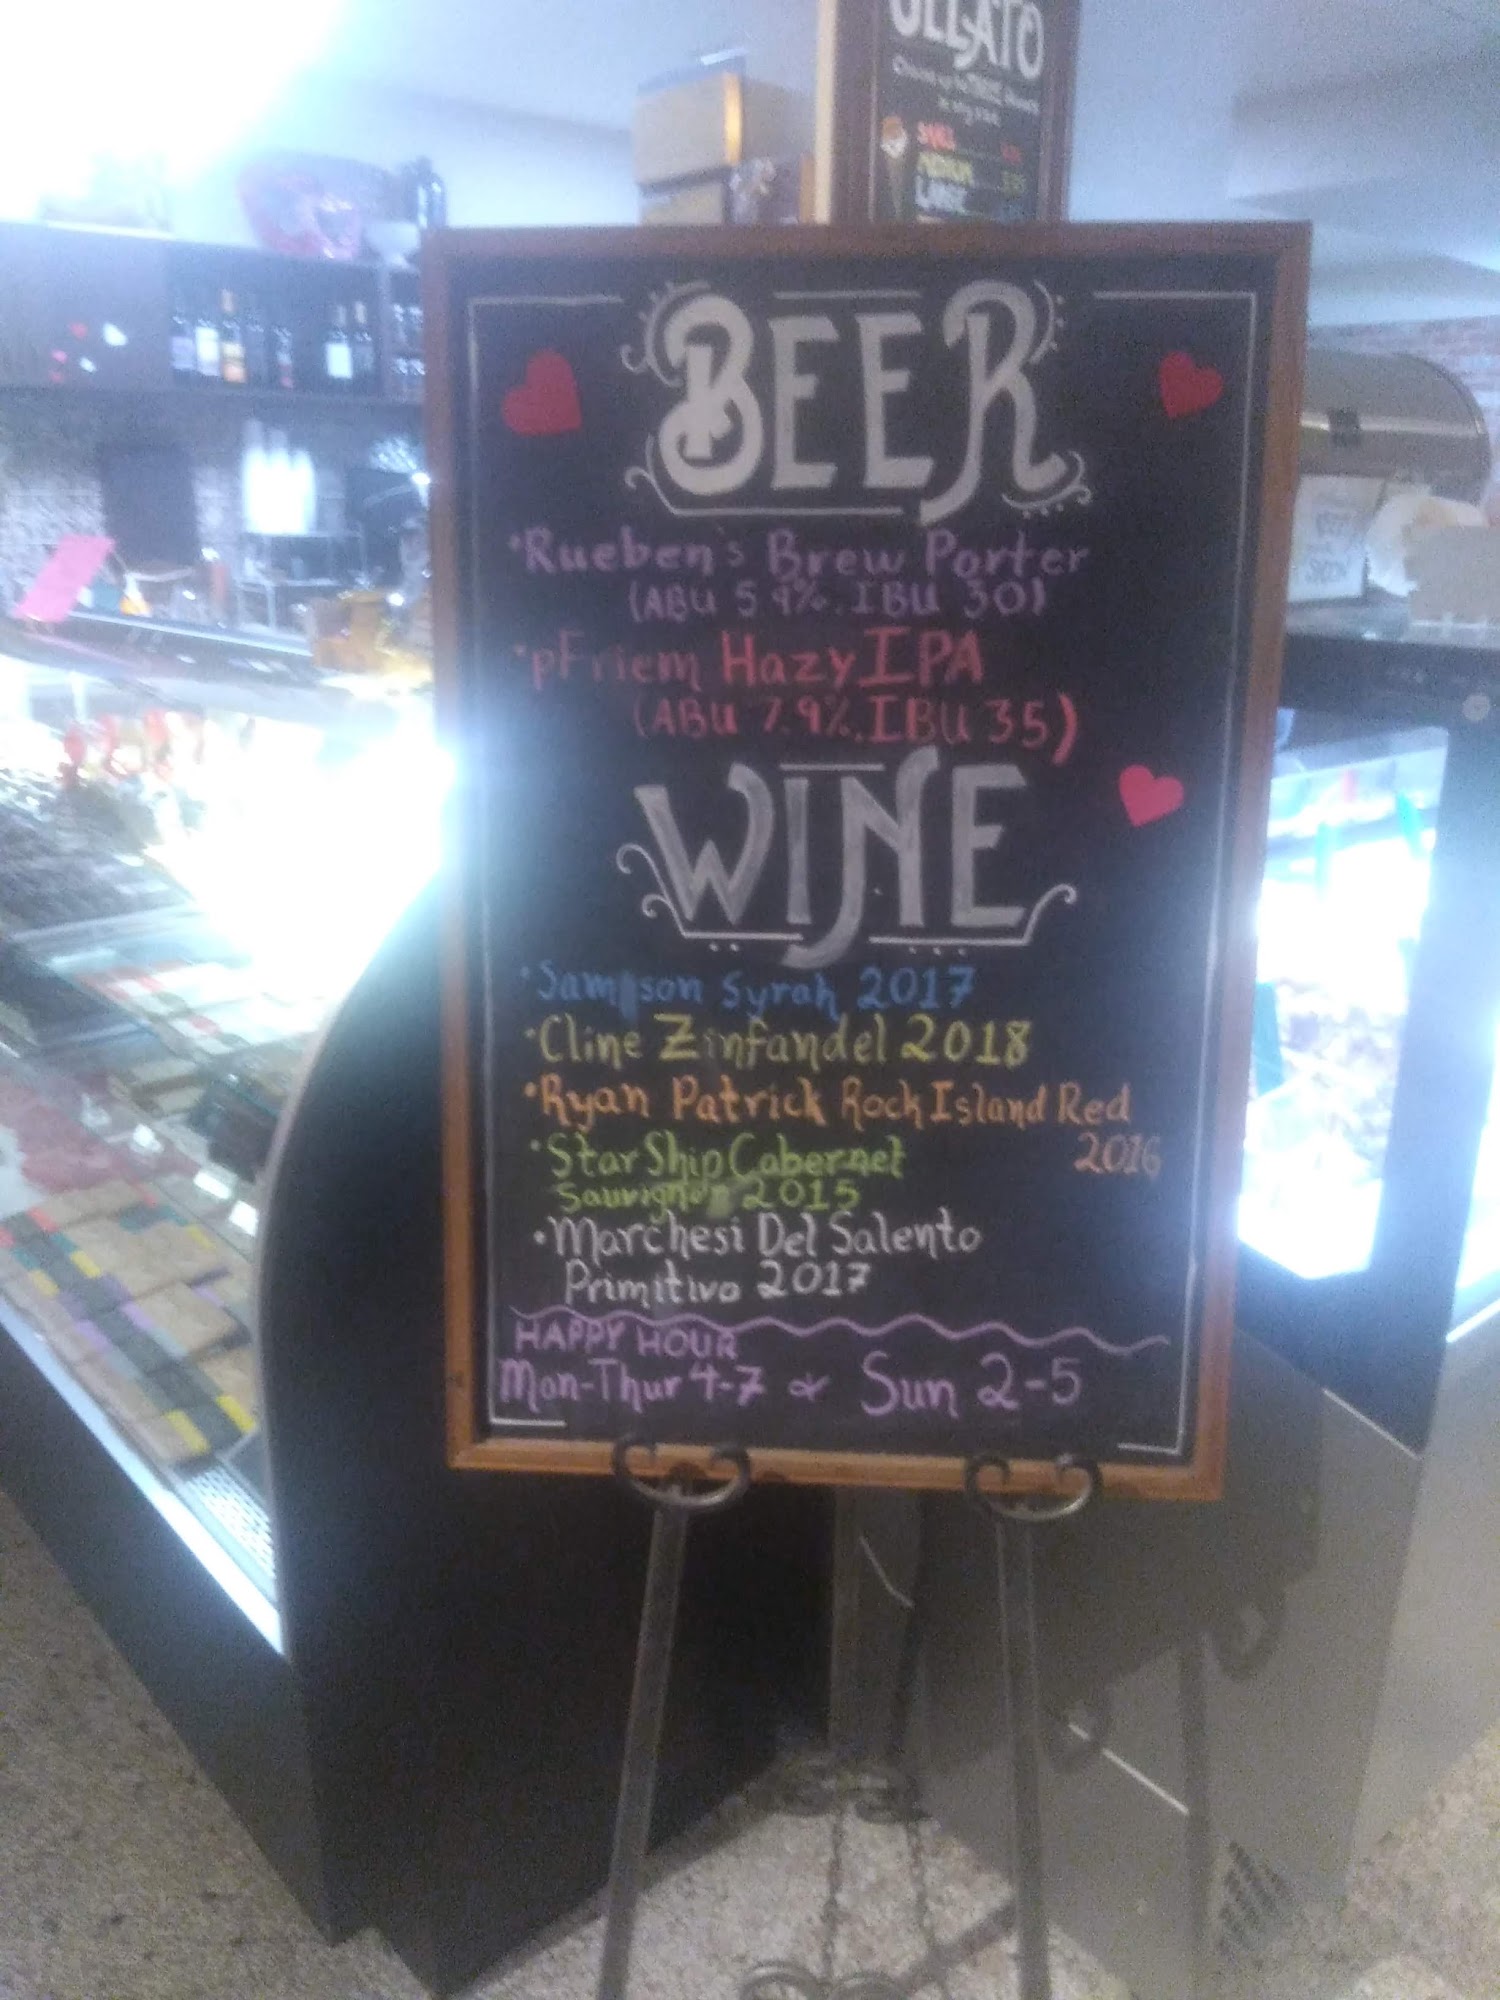 GELATO
SMALL
MEDIUM
LARGE
BEER
•Rueben's Brew Porter
(ABU 5.9%. IBU 30)
•pFriem Hazy IPA
(ABU 7.9%. IBU 35)
WINE
•Sampson Syrah 2017
•Cline Zinfandel 2018
•Ryan Patrick Rock Island Red
2016
•Star Ship Cabernet
Sauvignon 2015
•Marchesi Del Salento
Primitivo 2017
HAPPY HOUR
Mon-Thur 4-7 & Sun 2-5